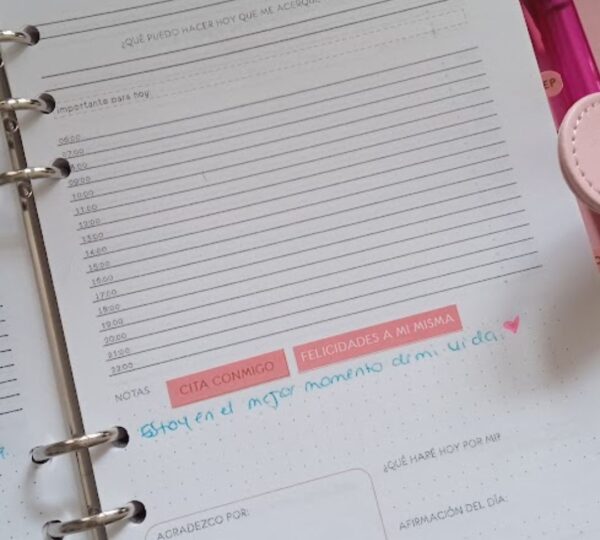 ¿QUÉ PUEDO HACER HOY QUE ME ACERQUE
importante para hoy
06:00
07:00
8:00
09:00
10:00
11:00
12:00
13:00
14:00
15:00
16:00
17:00
18:00
19:00
20:00
21:00
22:00
NOTAS CITA CONMIGO FELICIDADES A MI MISMA
Estoy en el mejor momento de mi vida.
¿QUÉ HARÉ HOY POR MI?
AGRADEZCO POR:
AFIRMACIÓN DEL DÍA:
EP